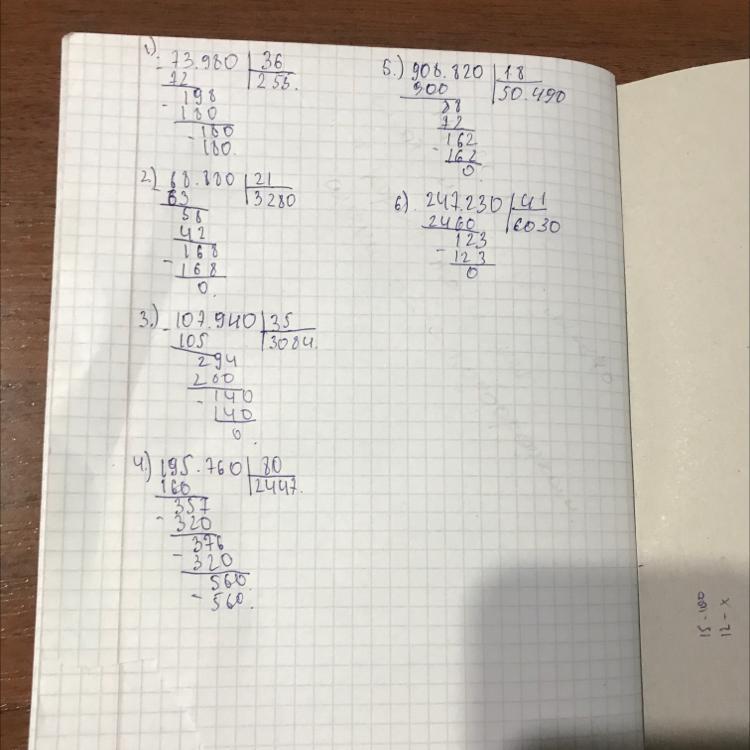 1.) 73.980 | 36
72 | 255.
198
- 180
180
- 180.
2.) 68.880 | 21
63 | 3280
58
42
168
- 168
0.
3.) - 107.940 | 35
105 | 3084.
294
280
- 140
140
0.
4.) 195.760 | 80
160 | 2447.
357
- 320
376
- 320
560
- 560.
5.) 908.820 | 18
900 | 50.490
88
72
162
- 162
0
6.) 247.230 | 41
2460 | 6030
123
- 123
0
15-100
12-x